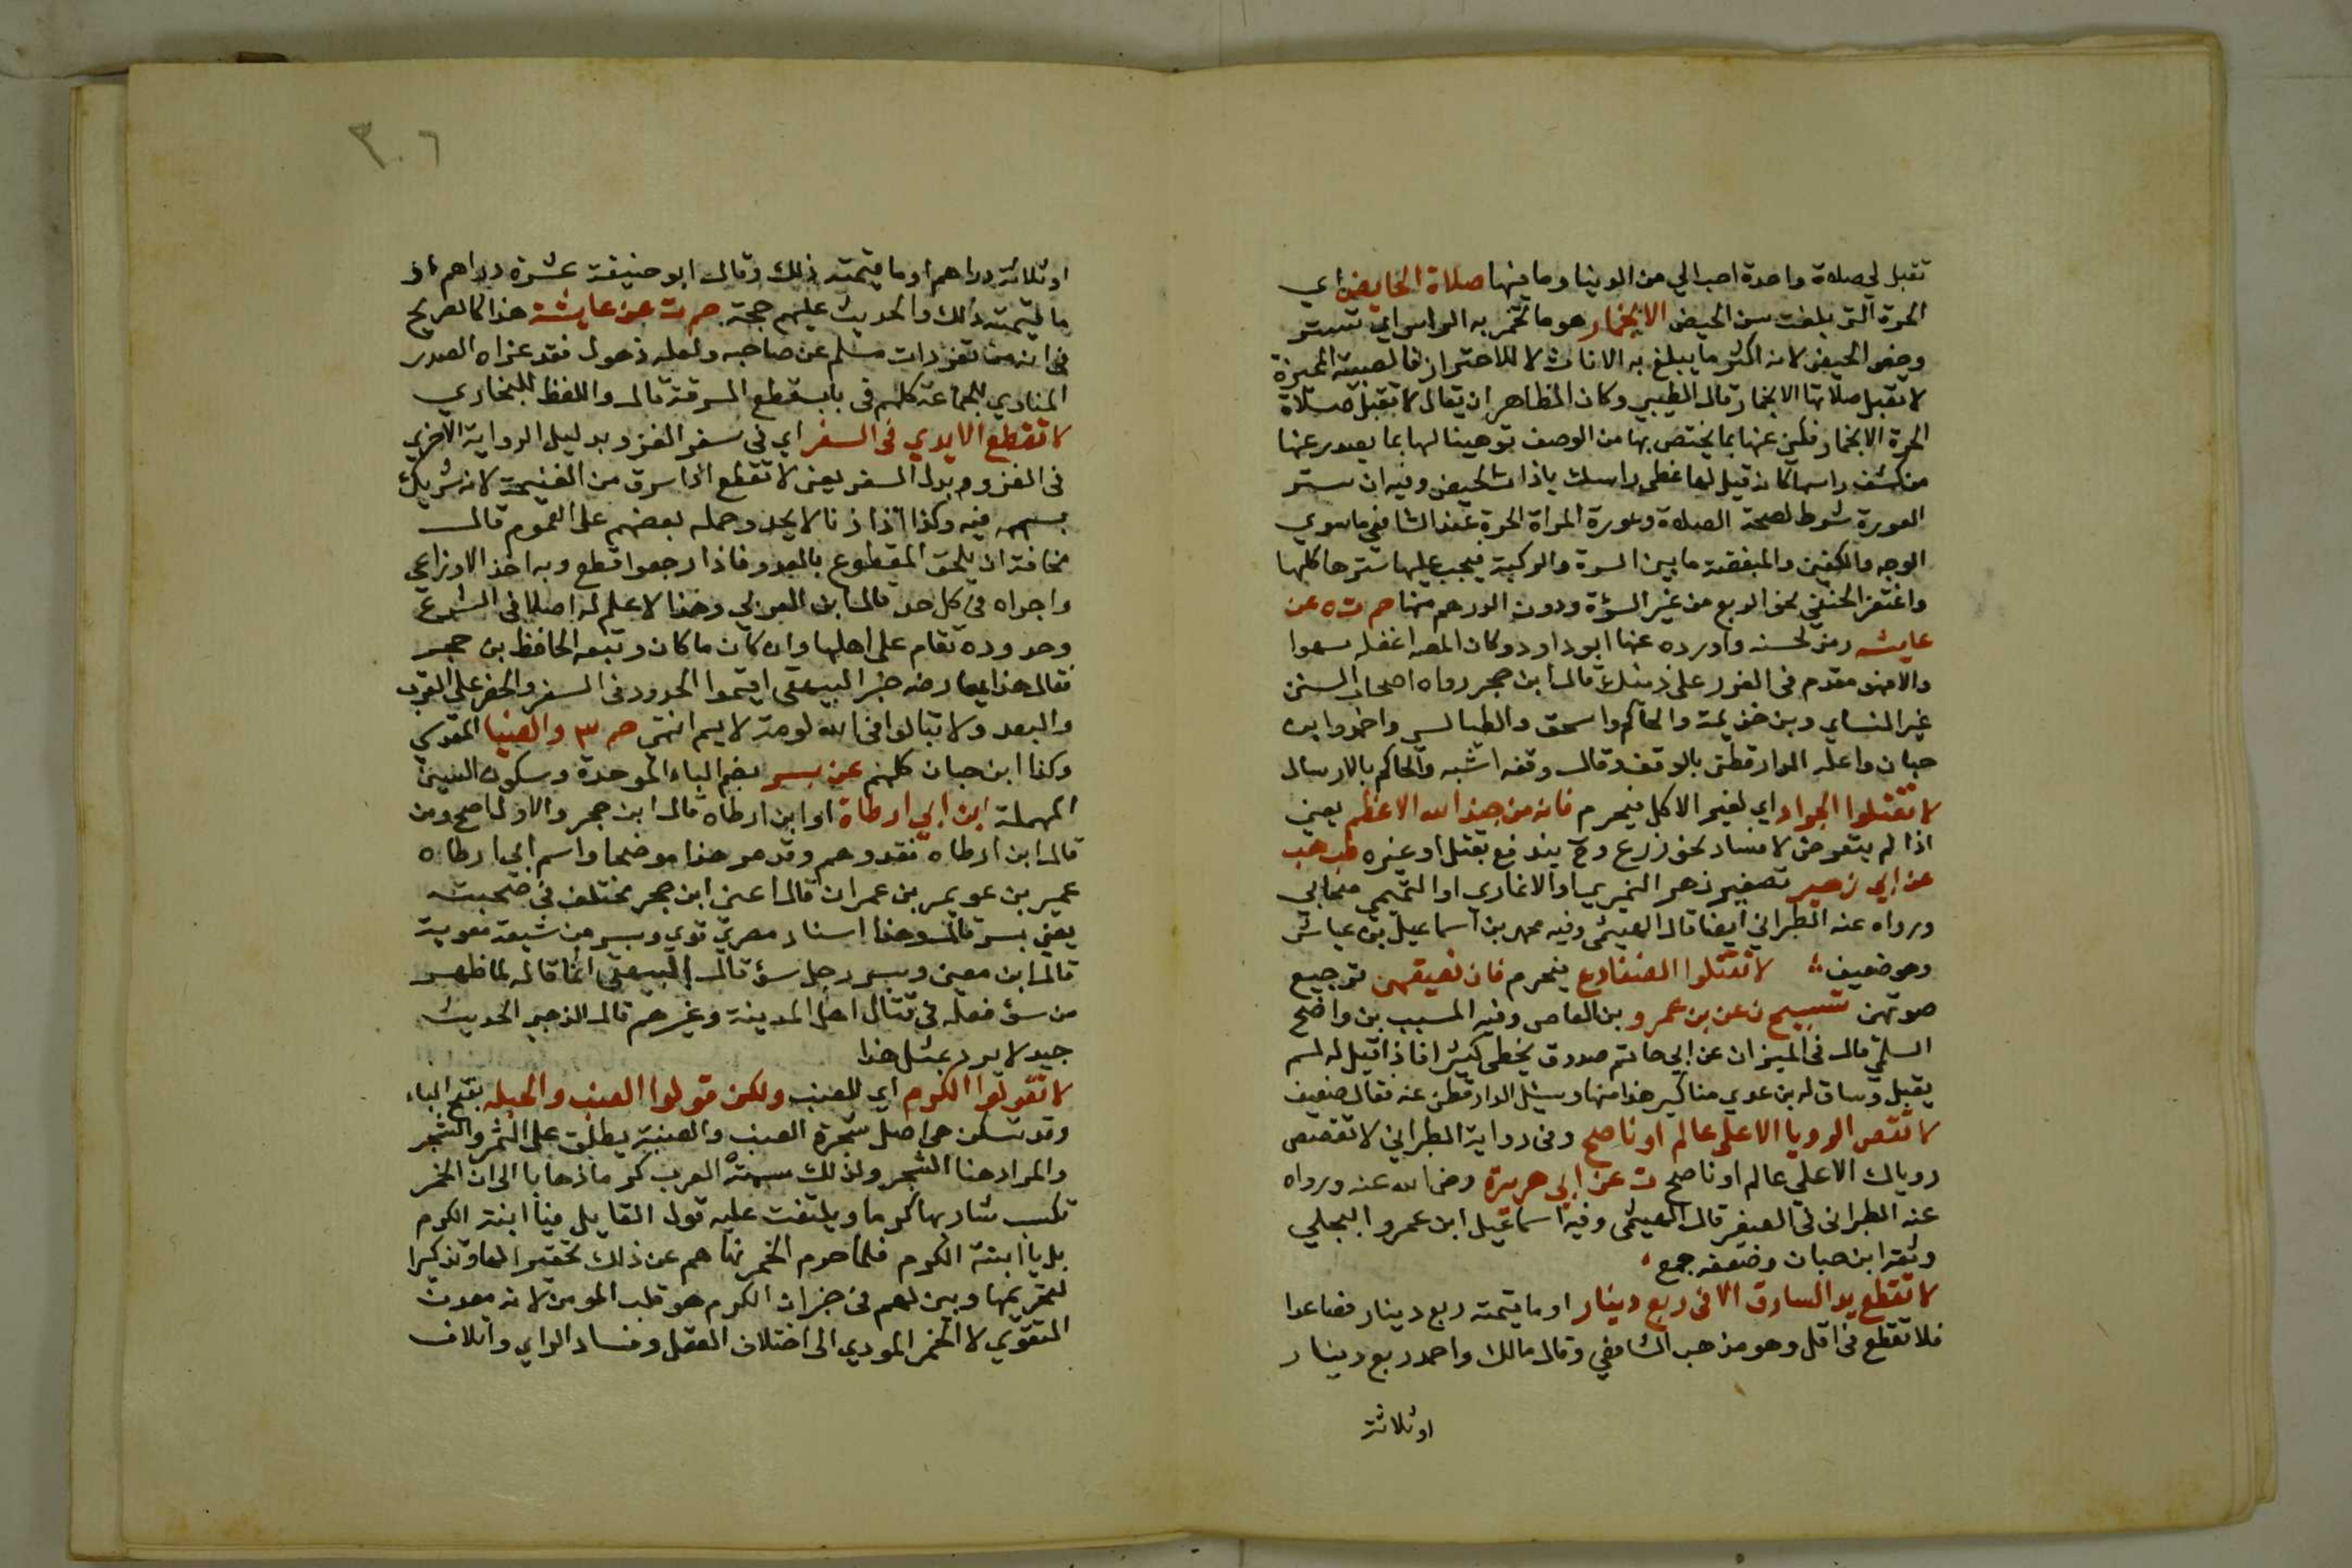 تقبل لي صلاة واحدة احب الي من الدنيا وما فيها صلاة الحايض اي
الحرة التي بلغت سن الحيض الا بخمار هو ما تخمر به الراس اي تستر
وخص الحيض لانه اكثر ما يبلغ به الاناث لا للاحتراز فالصبية المميزة
لا تقبل صلاتها الا بخمار قال الطيبي وكان الظاهر ان يقال لا تقبل صلاة
الحرة الا بخمار فكني عنها بما يختص بها من الوصف توهينا لها بما يصدر عنها
من كشف راسها كانه قيل لها غطي راسك ياذات الحيض وفيه ان ستر
العورة شرط لصحة الصلاة وعورة المراة الحرة عند الشافعي ما سوي
الوجه والكفين والمبغضة ما بين السرة والركبة فيجب عليها سترها كلها
واغتفر الحنفي نحو الربع من غير السؤة ودون الدرهم منها حم ت ه عن
عايشه رمز لحسنه واورده عنها ابو داود وكان المص اغفله سهوا
والا فهو مقدم في العزو علي ذينك قال ابن حجر رواه اصحاب السنن
غير النساي وبن خزيمة والحاكم واسحق والطيالسي واحمد وابن
حبان واعله الدارقطني بالوقف وقال وقفه اشبه والحاكم بالارسال
لا تقتلوا الجراد اي لغير الاكل فيحرم فانه من جند الله الاعظم يعني
اذا لم يتعرض لافساد نحو زرع وح يندفع بقتل او غيره طب هب
عن ابي زهير تصغير زهر النميري او الانماري او التميمي صحابي
ورواه عنه الطبراني ايضا قال الهيثمي وفيه محمد بن اسماعيل بن عياش
وهو ضعيف لا تقتلوا الضفادع فيحرم فان نعيقهن ترجيع
صوتهن تسبيح ن عن بن عمرو بن العاص وفيه المسيب بن واضح
السلمي قال في الميزان عن ابي حاتم صدوق يخطي كثيرا فاذا قيل له لم
يقبل وساق له بن عدي مناكير هذا منها وسئل الدارقطني عنه فقال ضعيف
لا تقص الرويا الا علي عالم او ناصح وفي رواية الطبراني لا تقصص
روياك الا علي عالم او ناصح ت عن ابي هريرة رضي الله عنه ورواه
عنه الطبراني في الصغير قال الهيثمي وفيه اسماعيل ابن عمرو البجلي
وثقه ابن حبان وضعفه جمع
لا تقطع يد السارق الا في ربع دينار او ما قيمته ربع دينار فصاعدا
فلا تقطع في اقل وهو مذهب الشافعي وقال مالك واحمد ربع دينار
او ثلاثة
٣٠٦
او ثلاثة دراهم او ما قيمته ذلك وقال ابو حنيفة عشرة دراهم او
ما قيمته ذلك والحديث عليهم حجة حم ت عن عايشة هذا كالصريح
في انه من تفردات مسلم عن صاحبه ولعله ذهول فقد عزاه الصدر
المناوي للجماعة كلهم في باب قطع السرقة قال واللفظ للبخاري
لا تقطع الايدي في السفر اي في سفر الغزو بدليل الرواية الاخري
في الغزو بدل السفر يعني لا تقطع اذا سرق من الغنيمة لانه شريك
بسهمه فيه وكذا اذا زنا لا يحد وحمله بعضهم علي العموم قال
مخافة ان يلحق المقطوع بالعدو فاذا رجعوا قطع وبه اخذ الاوزاعي
واجراه في كل حد قال ابن العربي وهذا لا اعلم له اصلا في الشرع
وحدوده تقام علي اهلها وان كان ما كان وتبعه الحافظ بن حجر
فقال هذا يعارضه خبر البيهقي اقيموا الحدود في السفر والحضر علي القرب
والبعد ولا تبالوا في الله لومة لايم انتهي حم ٣ والضيا المقدسي
وكذا ابن حبان كلهم عن بسر بضم الباء الموحدة وسكون السين
المهملة ابن ابي ارطاة او ابن ارطاه قال ابن حجر والاول اصح ومن
قال ابن ارطاه فقد وهم وقد مر هذا موضحا واسم ابي ارطاه
عمير بن عويمر بن عمران قال اعني ابن حجر مختلف في صحبته
يعني بسر قال وهذا اسناد مصري قوي وبسر من شيعة معوية
قال ابن معين وبسر رجل سؤ قال البيهقي انما قاله لما ظهر
من سؤ فعله في قتال اهل المدينة وغيرهم قال الذهبي الحديث
جيد لا يرد بمثل هذا
لا تقولوا الكرم اي للعنب ولكن قولوا العنب والحبله بفتح الباء
وقد تسكن هي اصل شجرة العنب والعنبة يطلق علي الثمر والشجر
والمراد هنا الشجر ولذلك سمته العرب كرما ذهابا الي ان الخمر
تكسب شاربها كرما ويلتفت عليه قول القايل فيا ابنة الكرم
بل يا ابنة الكرم فلما حرم الخمر نهاهم عن ذلك تحقيرا لها وتذكيرا
لتحريمها وبين لهم في خبر ان الكرم هو قلب المومن لانه معدن
التقوي لا الخمر المودي الي اختلاف العقل وفساد الراي واتلاف